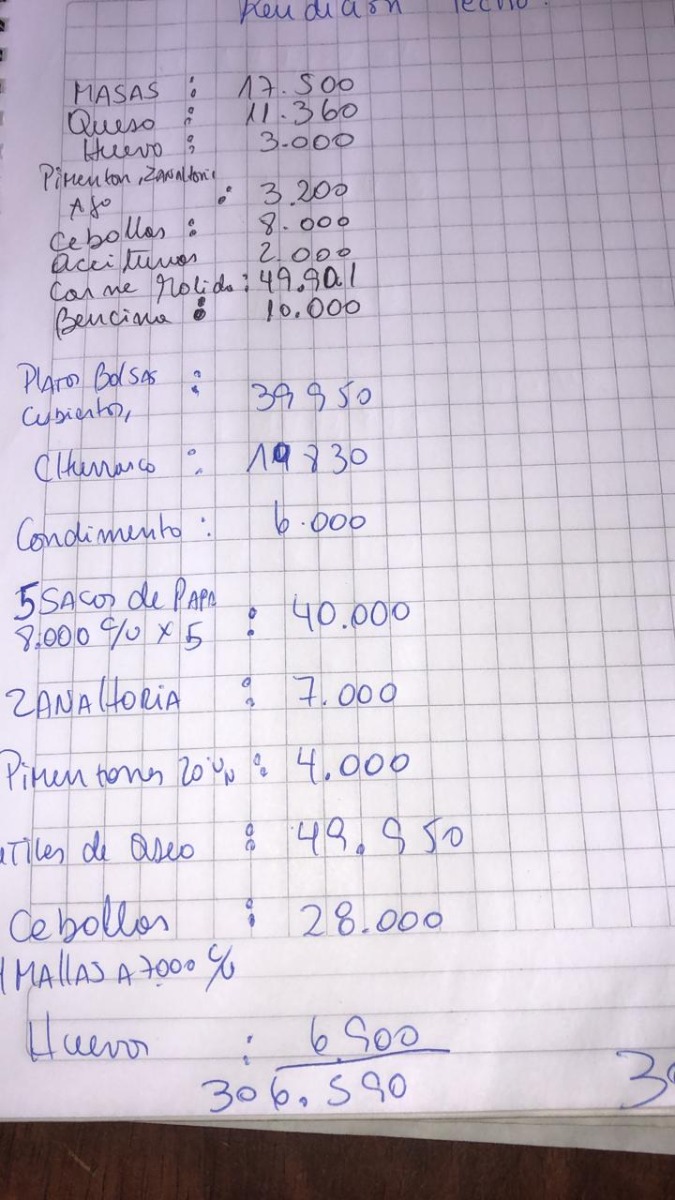 Rendición Techo.
MASAS : 17.500
Queso : 11.360
Huevo : 3.000
Pimenton, Zanahoria
Ajo : 3.200
Cebollas : 8.000
aceitunas 2.000
Carne Molida : 49.901
Bencina : 10.000
Platos Bolsas : 39950
Cubiertos,
CHurrasco : 19830
Condimento : 6.000
5 SACOS de PAPA
8.000 c/u x 5 : 40.000
ZANAHORIA : 7.000
Pimentones 20 UN : 4.000
utiles de aseo : 49.950
Cebollas : 28.000
MALLAS A 7000 c/u
Huevos : 6.900
306.590